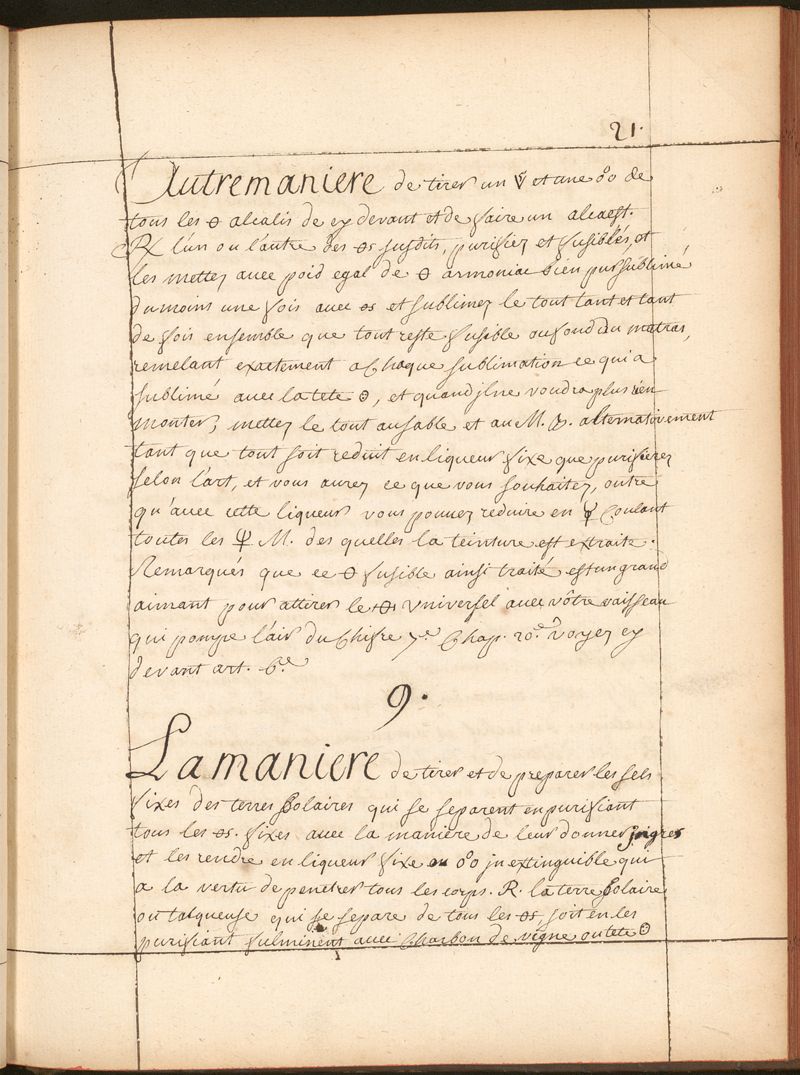 21.
Autre maniere de tirer un ☿ et une o°o de
tous les 🜔 alcalis de cy devant et de faire un alcaest.
℞ l'un ou l'autre des 🜔s susdits, purifiez et fusibles, et
les mettez avec poid egal de 🜔 armoniac bien pur sublimé
du moins une fois avec 🜔s et sublimez le tout tant et tant
de fois ensemble que tout reste fusible au fond du matras,
remelant exactement a Chaque sublimation ce qui a
sublimé avec la tete, et quand jl ne voudra plus rien
monter, mettez le tout au sable et au M. B. alternativement
tant que tout soit reduit en liqueur fixe que purifierez
selon l'art, et vous aurez ce que vous souhaitez, outre
qu'avec cette liqueur vous pouvez reduire en ☿ Coulant
toutes les M. des quelles la teinture est extraite.
Remarqués que ce 🜔 fusible ainsi traité est un grand
aimant pour attirer le 🜔 Vniversel avec vôtre vaisseau
qui pompe l'air du Chifre 7.e Chap. 20.e voyez cy
devant art. 6.e
9.
La maniere de tirer et de preparer les sels
fixes des terres Solaires qui se separent en purifiant
tous les 🜔s. fixes avec la maniere de leur donner jngres
et les rendre en liqueur fixe ou o°o jnextinguible qui
a la vertu de penetrer tous les corps. R. la terre Solaire
ou talqueuse qui se separe de tous les 🜔s, soit en les
purifiant fulminent avec Charbon de vigne ou tete